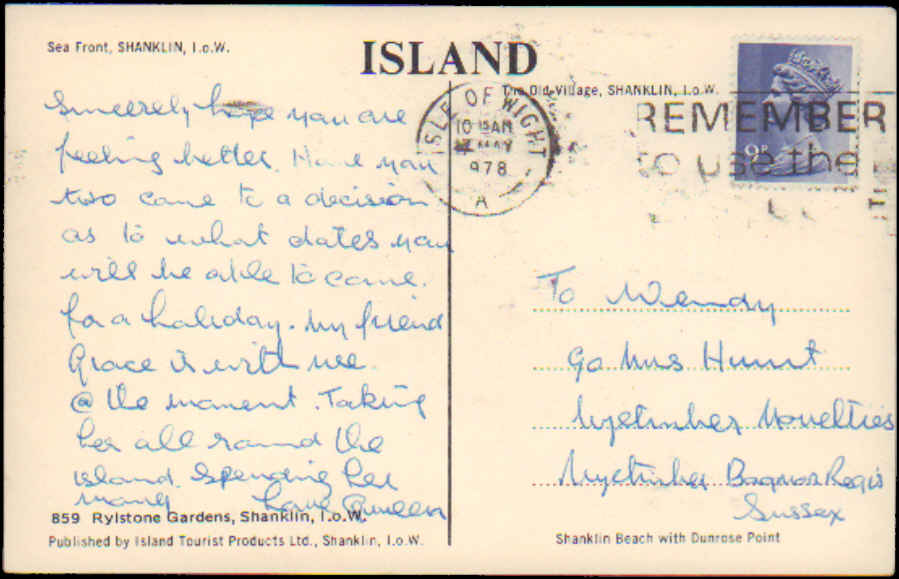 Sea Front, SHANKLIN, I.o.W.
ISLAND
The Old Village, SHANKLIN, I.o.W.
Sincerely hope you are
feeling better. Have you
two came to a decision
as to what dates you
will be able to come.
for a holiday. My friend
Grace is with me
@ the moment. Taking
her all round the
island. Spending her
money Love Queen
859 Rylstone Gardens, Shanklin, I.o.W.
Published by Island Tourist Products Ltd., Shanklin, I.o.W.
ISLE OF WIGHT
10 15AM
MAY
1978
A
REMEMBER
to use the
9P
To Wendy
c/o Mrs Hunt
Nyetimber Novelties
Nyetimber Bognor Regis
Sussex
Shanklin Beach with Dunrose Point